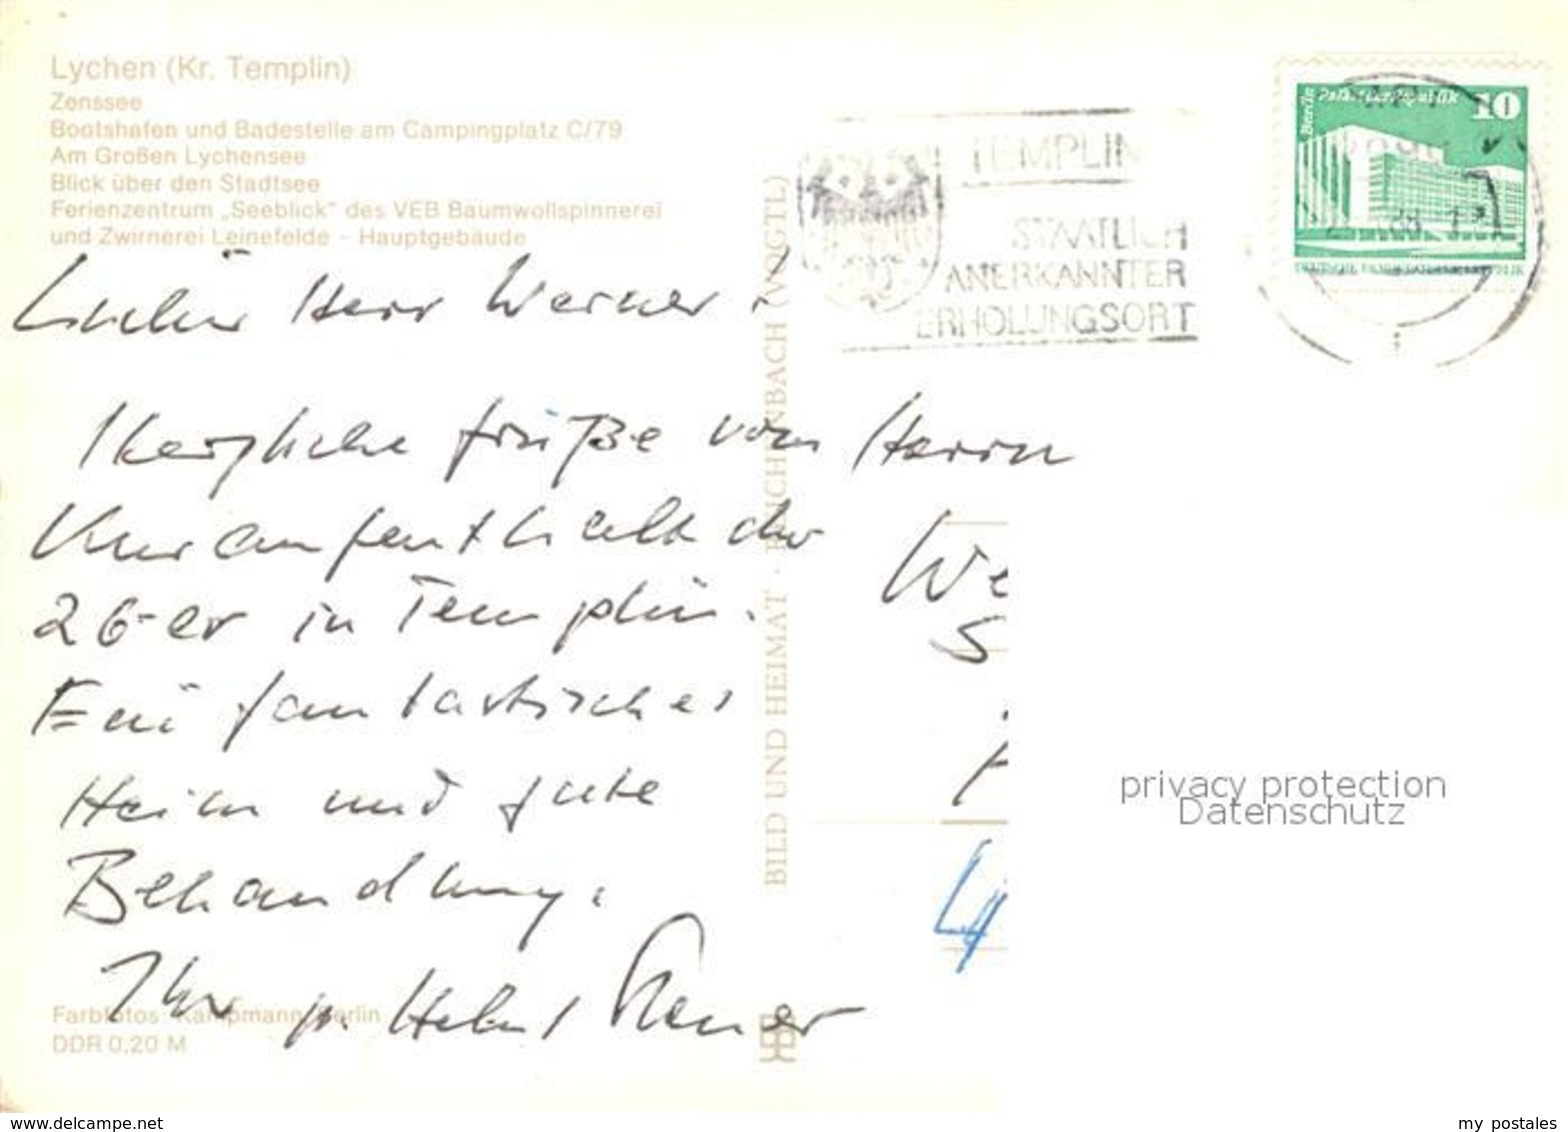 Lychen (Kr. Templin)
Zenssee
Bootshafen und Badestelle am Campingplatz C/79
Am Großen Lychensee
Blick über den Stadtsee
Ferienzentrum „Seeblick“ des VEB Baumwollspinnerei
und Zwirnerei Leinefelde - Hauptgebäude
Herr Werner !
Herzliche Grüße vom
Kuraufenthalt der
26-er in Templin.
Ein fantastisches
Heim und gute
Behandlung.
Ihr
Farbfotos: Kampmann, Berlin
DDR 0,20 M
BILD UND HEIMAT · REICHENBACH (VOGTL)
TEMPLIN
STAATLICH
ANERKANNTER
ERHOLUNGSORT
Berlin Palast der Republik 10
Herrn
We
S
privacy protection
Datenschutz
www.delcampe.net
my_postales